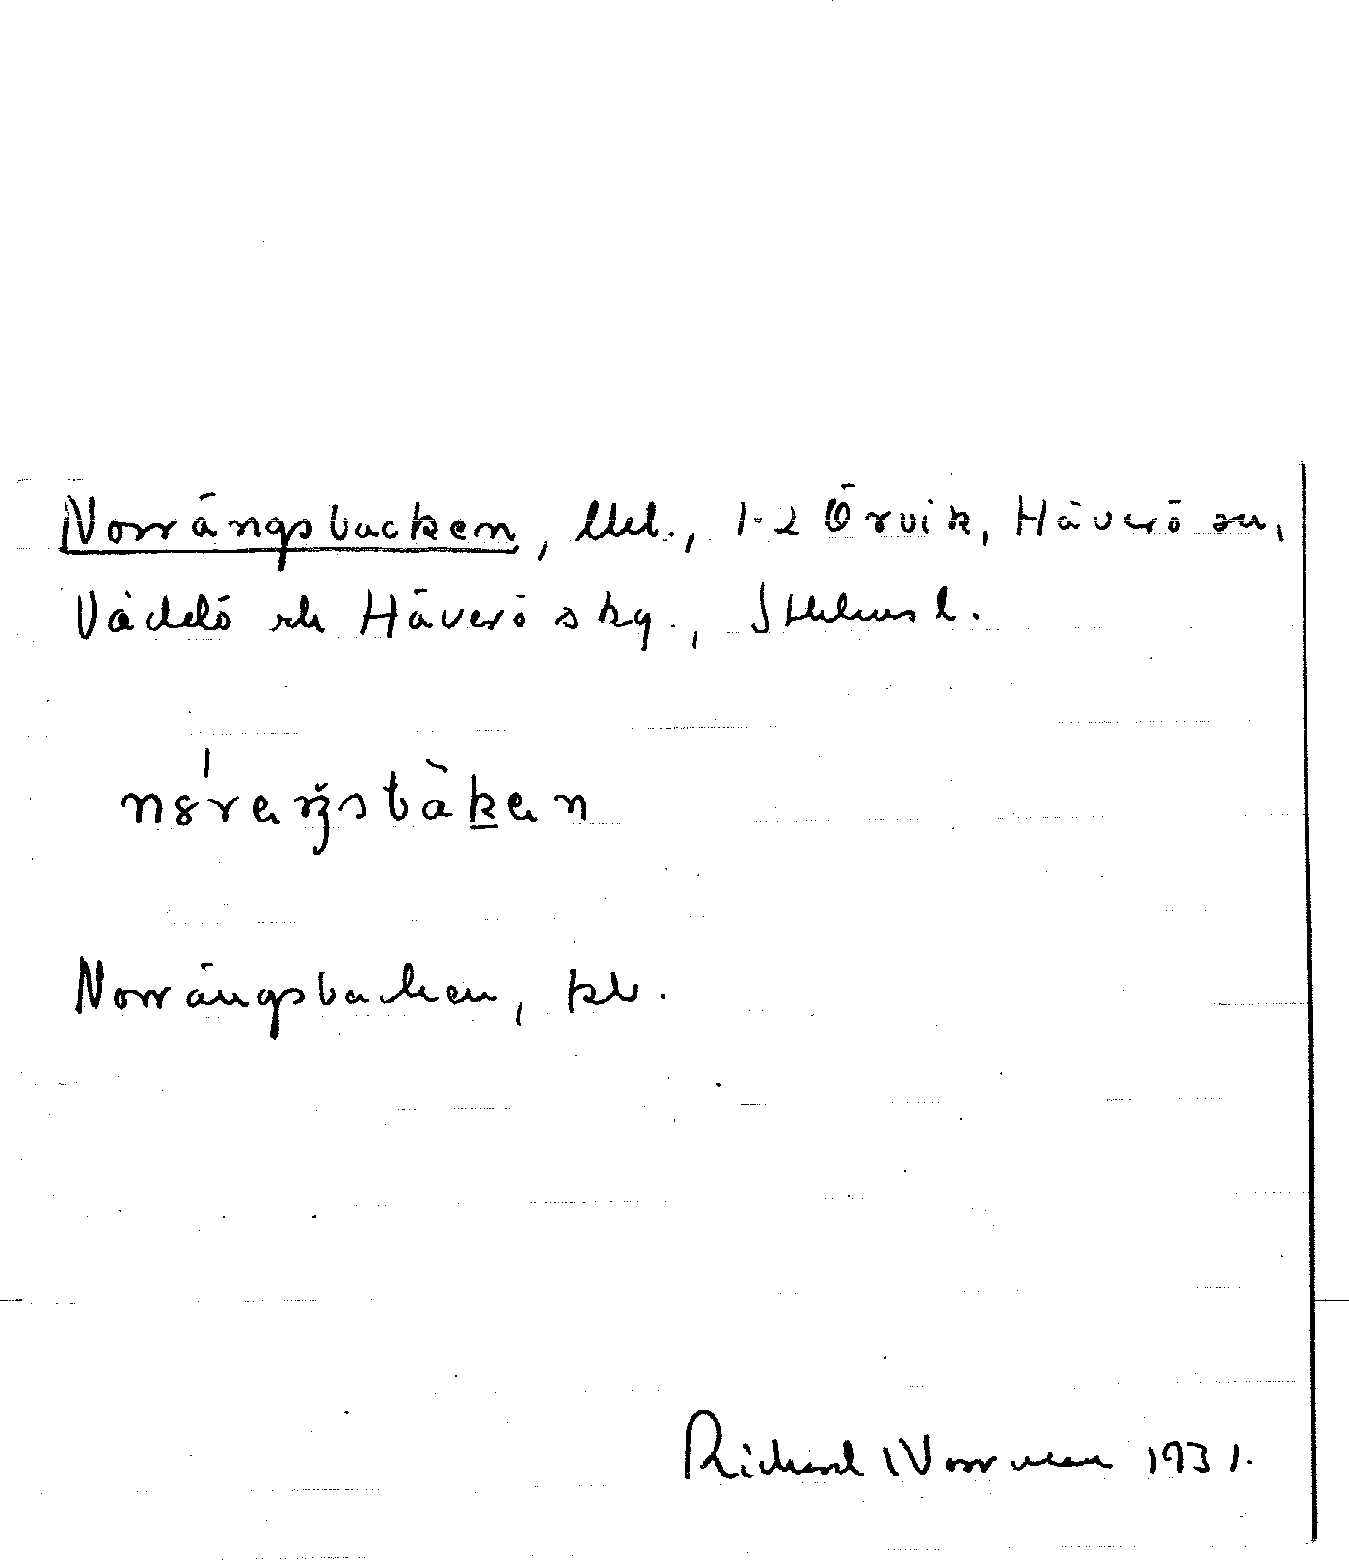 Norrängsbacken, Utel., 1-2 Örvik, Häverö sn,
Väddö och Häverö skg., Sthlms l.
Norrängsbacken, kb.
Richard Norrman 1931.